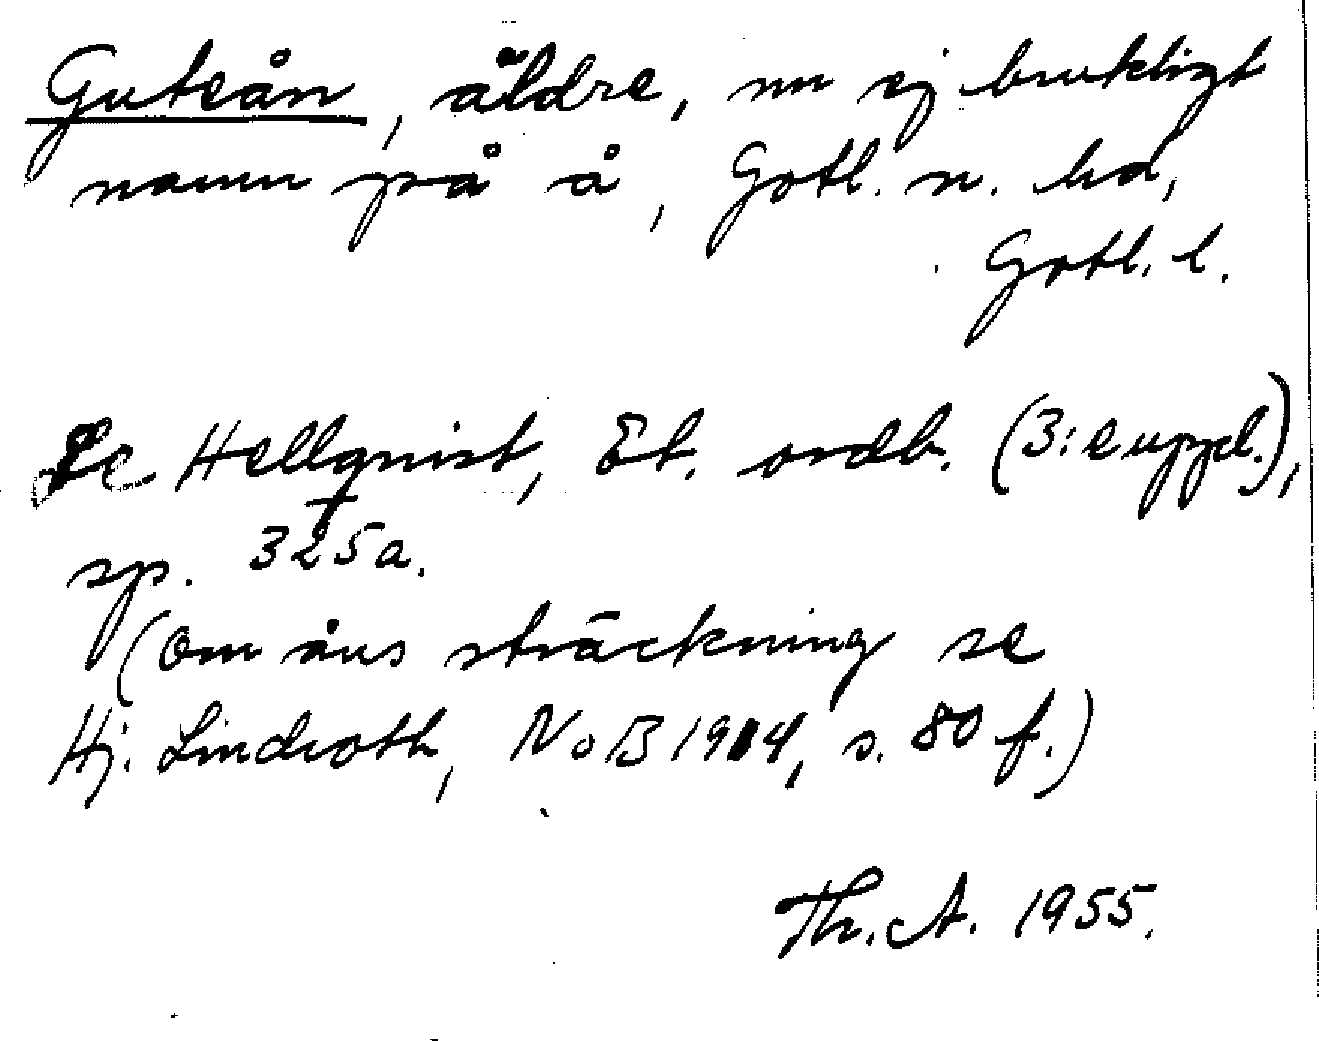 Guteån, äldre, nu ej brukligt
namn på å, Gotl. n. hd,
Gotl. l.
Se Hellquist, Et. ordb. (3:e uppl.),
sp. 325a.
(Om åns sträckning se
Hj. Lindroth, NoB 1914, s. 80 f.)
Th. A. 1955.